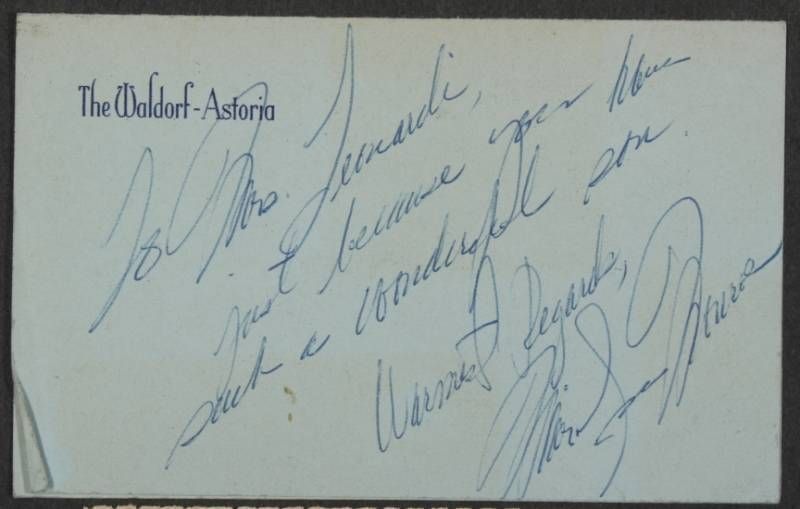 The Waldorf-Astoria
To Mrs. Leonardi,
Just because you have
such a wonderful son.
Warmest Regards,
Marilyn Monroe